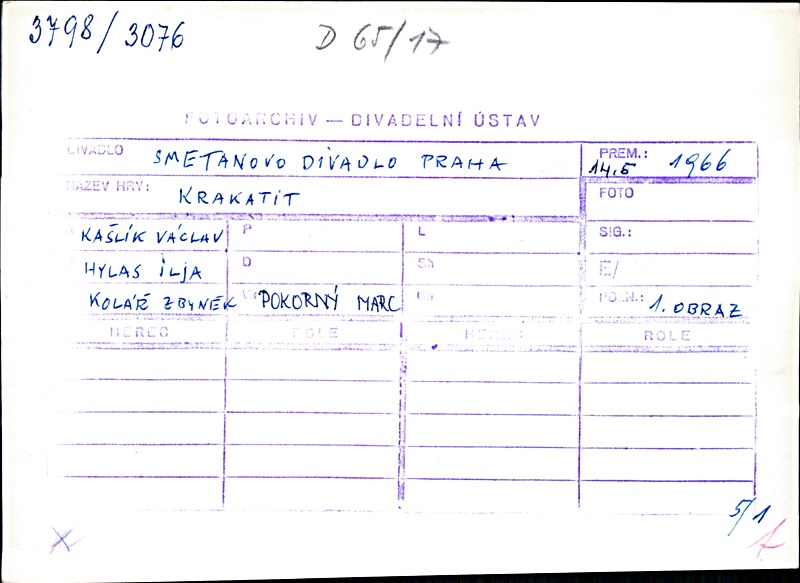 3798/3076
D 65/17
FOTOARCHIV — DIVADELNÍ ÚSTAV
DIVADLO SMETANOVO DIVADLO PRAHA PREM.: 14.5 1966
NÁZEV HRY: KRAKATIT FOTO
KAŠLÍK VÁCLAV P L SIG.:
HYLAS ILJA D Sh E/
KOLÁŘ ZBYNĚK POKORNÝ MARC POZN.: 1. OBRAZ
HEREC ROLE HEREC ROLE
5/1
X